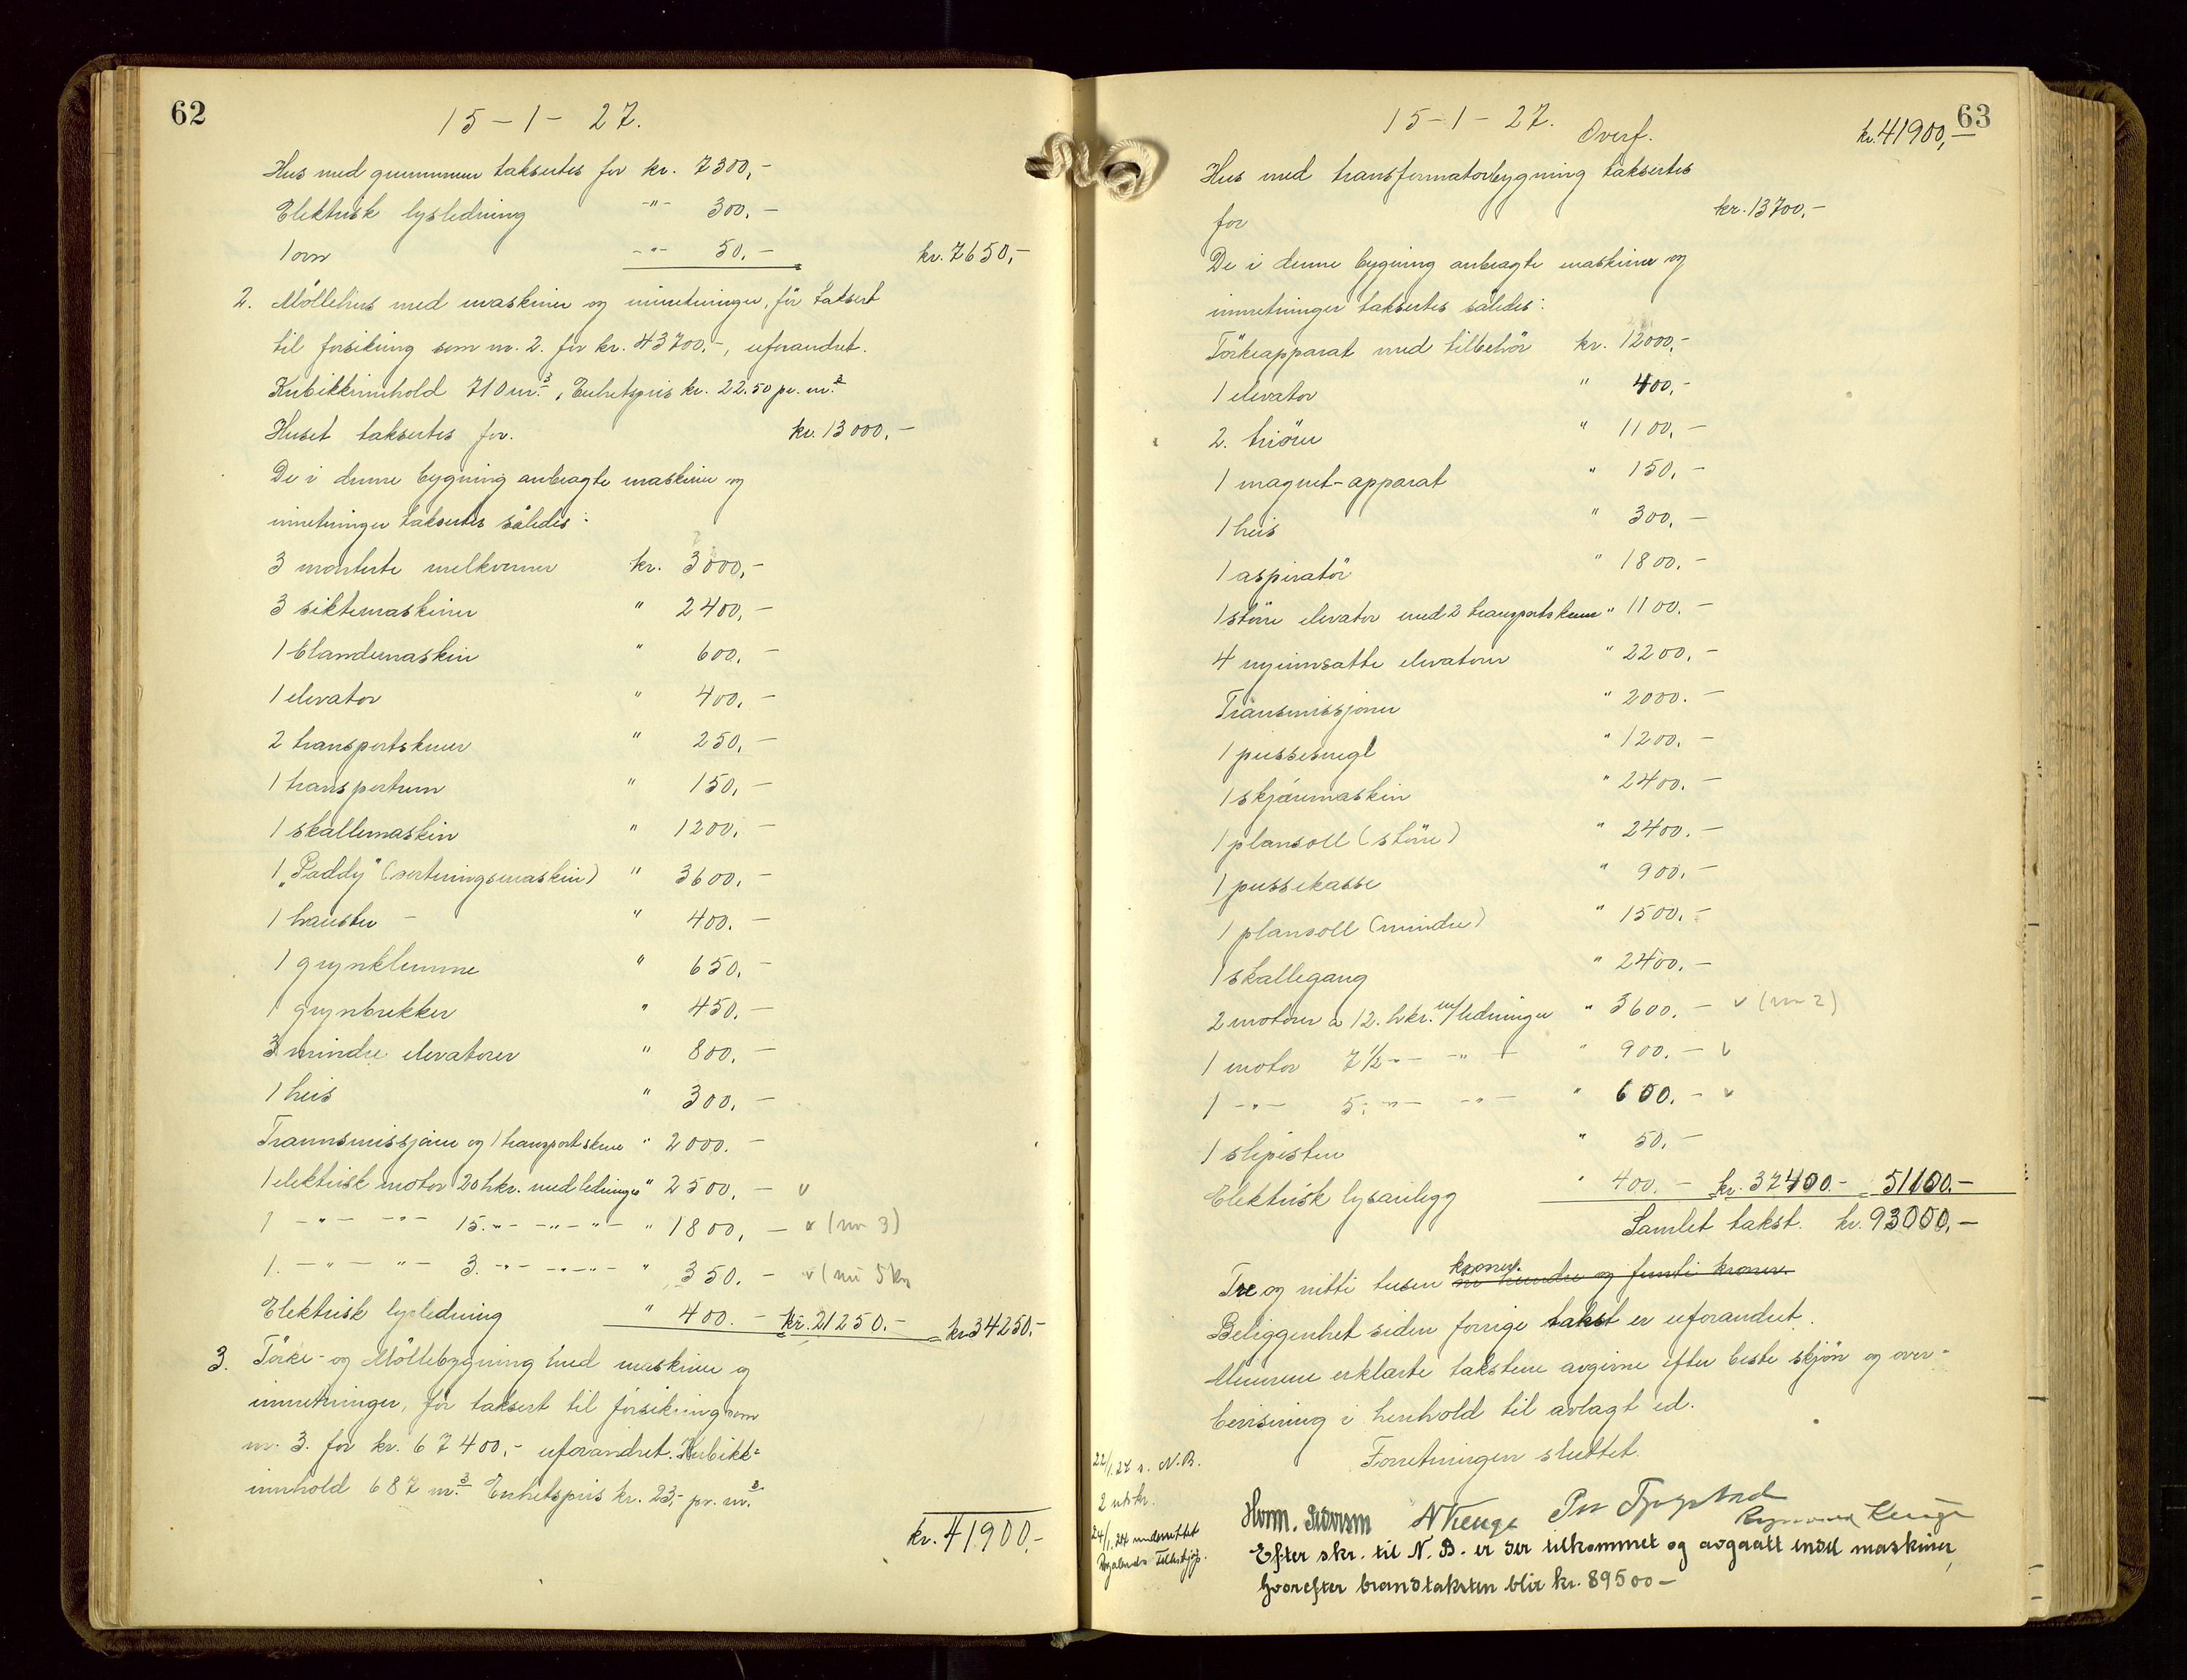 62
15-1-27.
Hus med grunnmur taksertes for kr. 7300,-
Elektrisk lysledning -"- 300.-
1 ovn -"- 50.- kr. 7650,-
2. Möllehus med maskiner og innretninger, för taksert
til forsikring som nr. 2. for kr. 43700.-, uforandret.
Kubikkinnhold 710 m.3, Enhetspris kr. 22.50 pr. m.3
Huset taksertes for. kr. 13000,-
De i denne bygning anbragte maskiner og
innretninger taksertes således:
3 monterte melkverner kr. 3000,-
3 siktemaskiner " 2400,-
1 blandemaskin " 600,-
1 elevator " 400,-
2 transportskruer " 250,-
1 transportrem " 150,-
1 skallemaskin " 1200,-
1 „Paddy" (sorteringsmaskin) " 3600,-
1 " 400.-
1 grynklemme " 650,-
1 grynbrekker " 450.-
3 mindre elevatorer " 800,-
1 heis " 300,-
Trannsmissjoner og 1 transportskrue " 2000.-
1 elektrisk motor 20 hkr. med ledninger " 2500,- v
1 -"- -"- 15.-"- -"- -"- " 1800,- v (nr 3)
1. -"- -"- 3.-"- -"- -"- " 350.- v (nu 5 kr
Elektrisk lysledning " 400.- kr. 21250.- kr. 34250.-
3. Törke- og Möllebygning med maskiner og
innretninger, för taksert til forsikring som
nr. 3. for kr. 67400,- uforandret. Kubikk-
innhold 687 m.3 Enhetspris kr. 23,- pr. m.3
kr. 41900.-
63
15-1-27. Overf. kr. 41900,-
Hus med transformatorbygning taksertes
for kr. 13700,-
De i denne bygning anbragte maskiner og
innretninger taksertes således:
Törkeapparat med tilbehör kr. 12000,-
1 elevator " 400,-
2. triörer " 1100,-
1 magnet-apparat " 150,-
1 heis " 300,-
1 aspiratör " 1800.-
1 större elevator med 2 transportskruer " 1100.-
4 nyinnsatte elevatorer " 2200,-
Transmissjoner " 2000.-
1 pussesnegl " 1200.-
1 skjæremaskin " 2400.-
1 plansoll (större) " 2400.-
1 pussekasse " 900.-
1 plansoll (mindre) " 1500.-
1 skallegang " 2400.-
2 motorer a 12. hkr. m/ledninger " 3600.- v (nr 2)
1 motor 7½ -"- -"- " 900.- v
1 -"- 5. -"- -"- " 600.- v
1 slipesten " 50.-
Elektrisk lysanlegg " 400.- kr. 37400.- 51100.-
Samlet takst. kr. 93000,-
kroner.
Tre og nitti tusen ni hundre og femti kroner.
Beliggenhet siden forrige takst er uforandret.
Mennene erklærte takstene avgivne efter beste skjön og over-
bevisning i henhold til avlagt ed.
Forretningen sluttet.
22/1.27 s. N.B.
2 utskr.
24/1.27 underrettet
Rogalands Felleskjöp.
Efter skr. til N. B. er der tilkommet og avgaatt endel maskiner,
hvorefter brandtaksten blir kr. 89500-